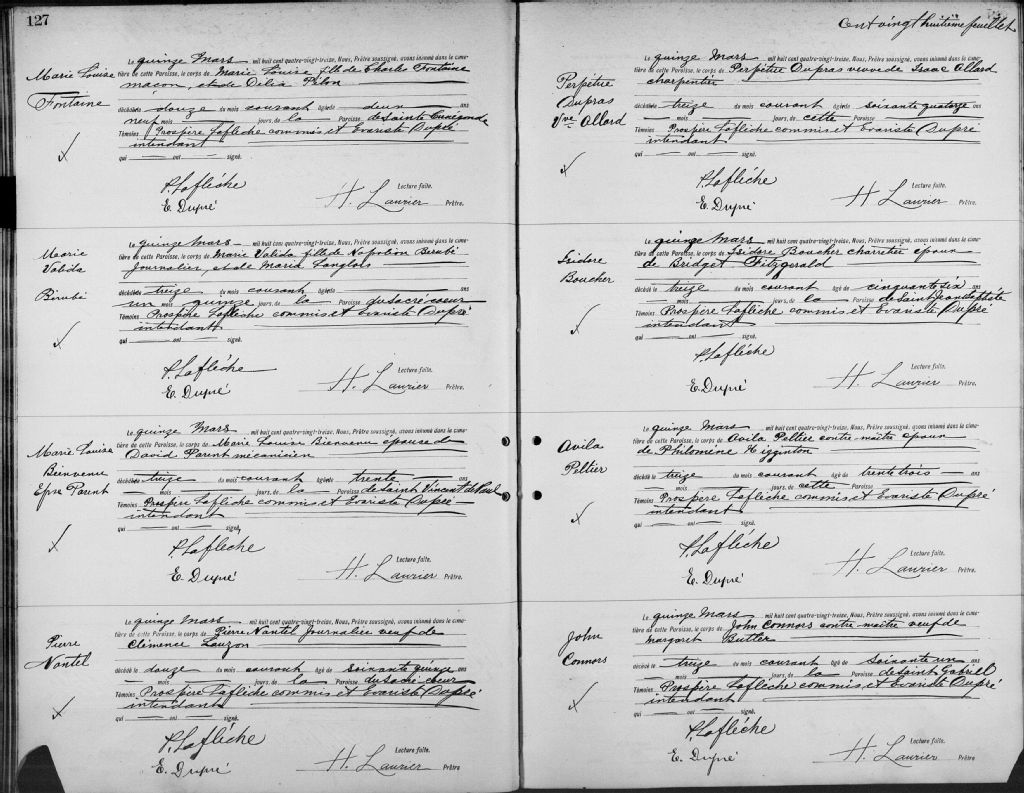 127
Marie Louise
Fontaine
Le quinze Mars mil huit cent quatre-vingt-treize, Nous, Prêtre soussigné, avons inhumé dans le cime-
tière de cette Paroisse, le corps de Marie Louise fille de Charles Fontaine
macon, et de Delia Pilon
décédée le douze du mois courant âgée de deux ans
neuf mois jours, de la Paroisse de Sainte Cunégonde
Témoins Prospère Laflèche commis et Evariste Dupré
intendant
qui ont signé.
P. Laflèche Lecture faite.
E. Dupré H. Laurier Prêtre.
Marie
Valida
Birubé
Le quinze Mars mil huit cent quatre-vingt-treize, Nous, Prêtre soussigné, avons inhumé dans le cime-
tière de cette Paroisse, le corps de Marie Valida fille de Napoléon Berubé
Journalier, et de Maria Langlois
décédée le treize du mois courant âgée de ans
un mois quinze jours, de la Paroisse du Sacré coeur
Témoins Prospère Laflèche commis, et Evariste Dupré
intendant
qui ont signé.
P. Laflèche Lecture faite.
E. Dupré H. Laurier Prêtre.
Marie Louise
Bienvenu
Epse Parent
Le quinze Mars mil huit cent quatre-vingt-treize, Nous, Prêtre soussigné, avons inhumé dans le cime-
tière de cette Paroisse, le corps de Marie Louise Bienvenu epouse de
David Parent mécanicien
décédée le treize du mois courant âgée de trente ans
mois jours, de la Paroisse de Saint Vincent de Paul
Témoins Prospère Laflèche commis, et Evariste Dupré
intendant
qui ont signé.
P. Laflèche Lecture faite.
E. Dupré H. Laurier Prêtre.
Pierre
Nantel
Le quinze Mars mil huit cent quatre-vingt-treize, Nous, Prêtre soussigné, avons inhumé dans le cime-
tière de cette Paroisse, le corps de Pierre Nantel Journalier veuf de
Clémence Lauzon
décédé le douze du mois courant âgé de soixante quinze ans
mois jours, de la Paroisse du Sacré coeur
Témoins Prospère Laflèche commis, et Evariste Dupré
intendant
qui ont signé.
P. Laflèche Lecture faite.
E. Dupré H. Laurier Prêtre
Cent vingt huitième feuillet
Perpétue
Dupras
Vve Allard
Le quinze Mars mil huit cent quatre-vingt-treize, Nous, Prêtre soussigné, avons inhumé dans le cime-
tière de cette Paroisse, le corps de Perpétue Dupras veuve de Isaac Allard
charpentier
décédée le treize du mois courant âgée de soixante quatorze ans
mois jours, de cette Paroisse
Témoins Prospère Laflèche commis et Evariste Dupré
intendant
qui ont signé.
P. Laflèche Lecture faite.
E. Dupré H. Laurier Prêtre.
Isidore
Boucher
Le quinze Mars mil huit cent quatre-vingt-treize, Nous, Prêtre soussigné, avons inhumé dans le cime-
tière de cette Paroisse, le corps de Isidore Boucher charretier epoux
de Bridget Fitzgerald
décédé le treize du mois courant âgé de cinquante six ans
mois jours, de la Paroisse de Saint Jean Baptiste
Témoins Prospère Laflèche commis, et Evariste Dupré
intendant
qui ont signé.
P. Laflèche Lecture faite.
E. Dupré H. Laurier Prêtre.
Avila
Peltier
Le quinze Mars mil huit cent quatre-vingt-treize, Nous, Prêtre soussigné, avons inhumé dans le cime-
tière de cette Paroisse, le corps de Avila Peltier contre-maître epoux
de Philomene Higginton
décédé le treize du mois courant âgé de trente trois ans
mois jours, de cette Paroisse
Témoins Prospère Laflèche commis, et Evariste Dupré
intendant
qui ont signé.
P. Laflèche Lecture faite.
E. Dupré H. Laurier Prêtre.
John
Connors
Le quinze Mars mil huit cent quatre-vingt-treize, Nous, Prêtre soussigné, avons inhumé dans le cime-
tière de cette Paroisse, le corps de John Connors contre maître veuf de
Margaret Butler
décédé le treize du mois courant âgé de soixante un ans
mois jours, de la Paroisse de Saint Gabriel
Témoins Prospère Laflèche commis, et Evariste Dupré
intendant
qui ont signé.
P. Laflèche Lecture faite.
E. Dupré H. Laurier Prêtre.